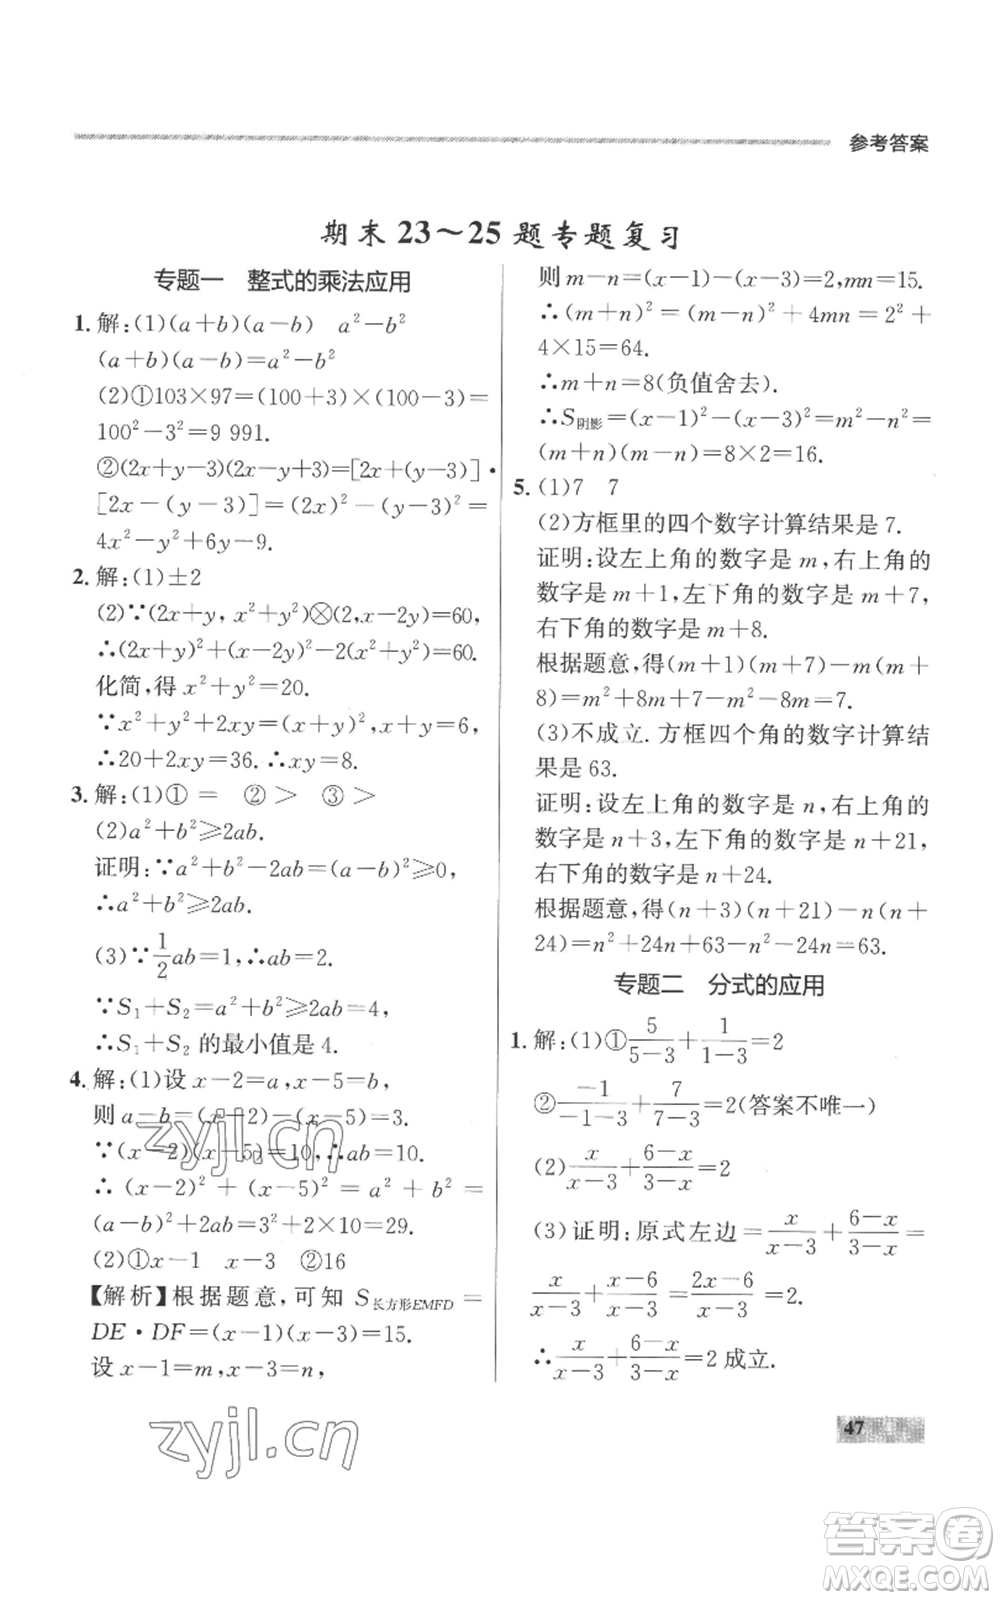 参考答案
期末 23～25 题专题复习
专题一 整式的乘法应用
1. 解:(1)(a+b)(a−b) a²−b²
(a+b)(a−b)=a²−b²
(2)①103×97=(100+3)×(100−3)=
100²−3²=9 991.
②(2x+y−3)(2x−y+3)=[2x+(y−3)]·
[2x−(y−3)]=(2x)²−(y−3)²=
4x²−y²+6y−9.
2. 解:(1)±2
(2)∵(2x+y, x²+y²)⊗(2,x−2y)=60,
∴(2x+y)²+(x−2y)²−2(x²+y²)=60.
化简,得 x²+y²=20.
∵x²+y²+2xy=(x+y)²,x+y=6,
∴20+2xy=36. ∴xy=8.
3. 解:(1)① = ②> ③>
(2)a²+b²≥2ab.
证明:∵a²+b²−2ab=(a−b)²≥0,
∴a²+b²≥2ab.
(3)∵1/2ab=1,∴ab=2.
∵S₁+S₂=a²+b²≥2ab=4,
∴S₁+S₂ 的最小值是 4.
4. 解:(1)设 x−2=a,x−5=b,
则 a−b=(x−2)−(x−5)=3.
∵(x−2)(x−5)=10,∴ab=10.
∴(x−2)²+(x−5)²=a²+b²=
(a−b)²+2ab=3²+2×10=29.
(2)①x−1 x−3 ②16
【解析】根据题意,可知 S长方形EMFD=
DE·DF=(x−1)(x−3)=15.
设 x−1=m,x−3=n,
则 m−n=(x−1)−(x−3)=2,mn=15.
∴(m+n)²=(m−n)²+4mn=2²+
4×15=64.
∴m+n=8(负值舍去).
∴S阴影=(x−1)²−(x−3)²=m²−n²=
(m+n)(m−n)=8×2=16.
5. (1)7 7
(2)方框里的四个数字计算结果是 7.
证明:设左上角的数字是 m,右上角的
数字是 m+1,左下角的数字是 m+7,
右下角的数字是 m+8.
根据题意,得(m+1)(m+7)−m(m+
8)=m²+8m+7−m²−8m=7.
(3)不成立. 方框四个角的数字计算结
果是 63.
证明:设左上角的数字是 n,右上角的
数字是 n+3,左下角的数字是 n+21,
右下角的数字是 n+24.
根据题意,得(n+3)(n+21)−n(n+
24)=n²+24n+63−n²−24n=63.
专题二 分式的应用
1. 解:(1)①5/(5−3)+1/(1−3)=2
②−1/(−1−3)+7/(7−3)=2(答案不唯一)
(2)x/(x−3)+(6−x)/(3−x)=2
(3)证明:原式左边=x/(x−3)+(6−x)/(3−x)=
x/(x−3)+(x−6)/(x−3)=(2x−6)/(x−3)=2.
∴x/(x−3)+(6−x)/(3−x)=2 成立.
zyjl.cn
zyjl.cn
47
答案卷
MXQE.COM